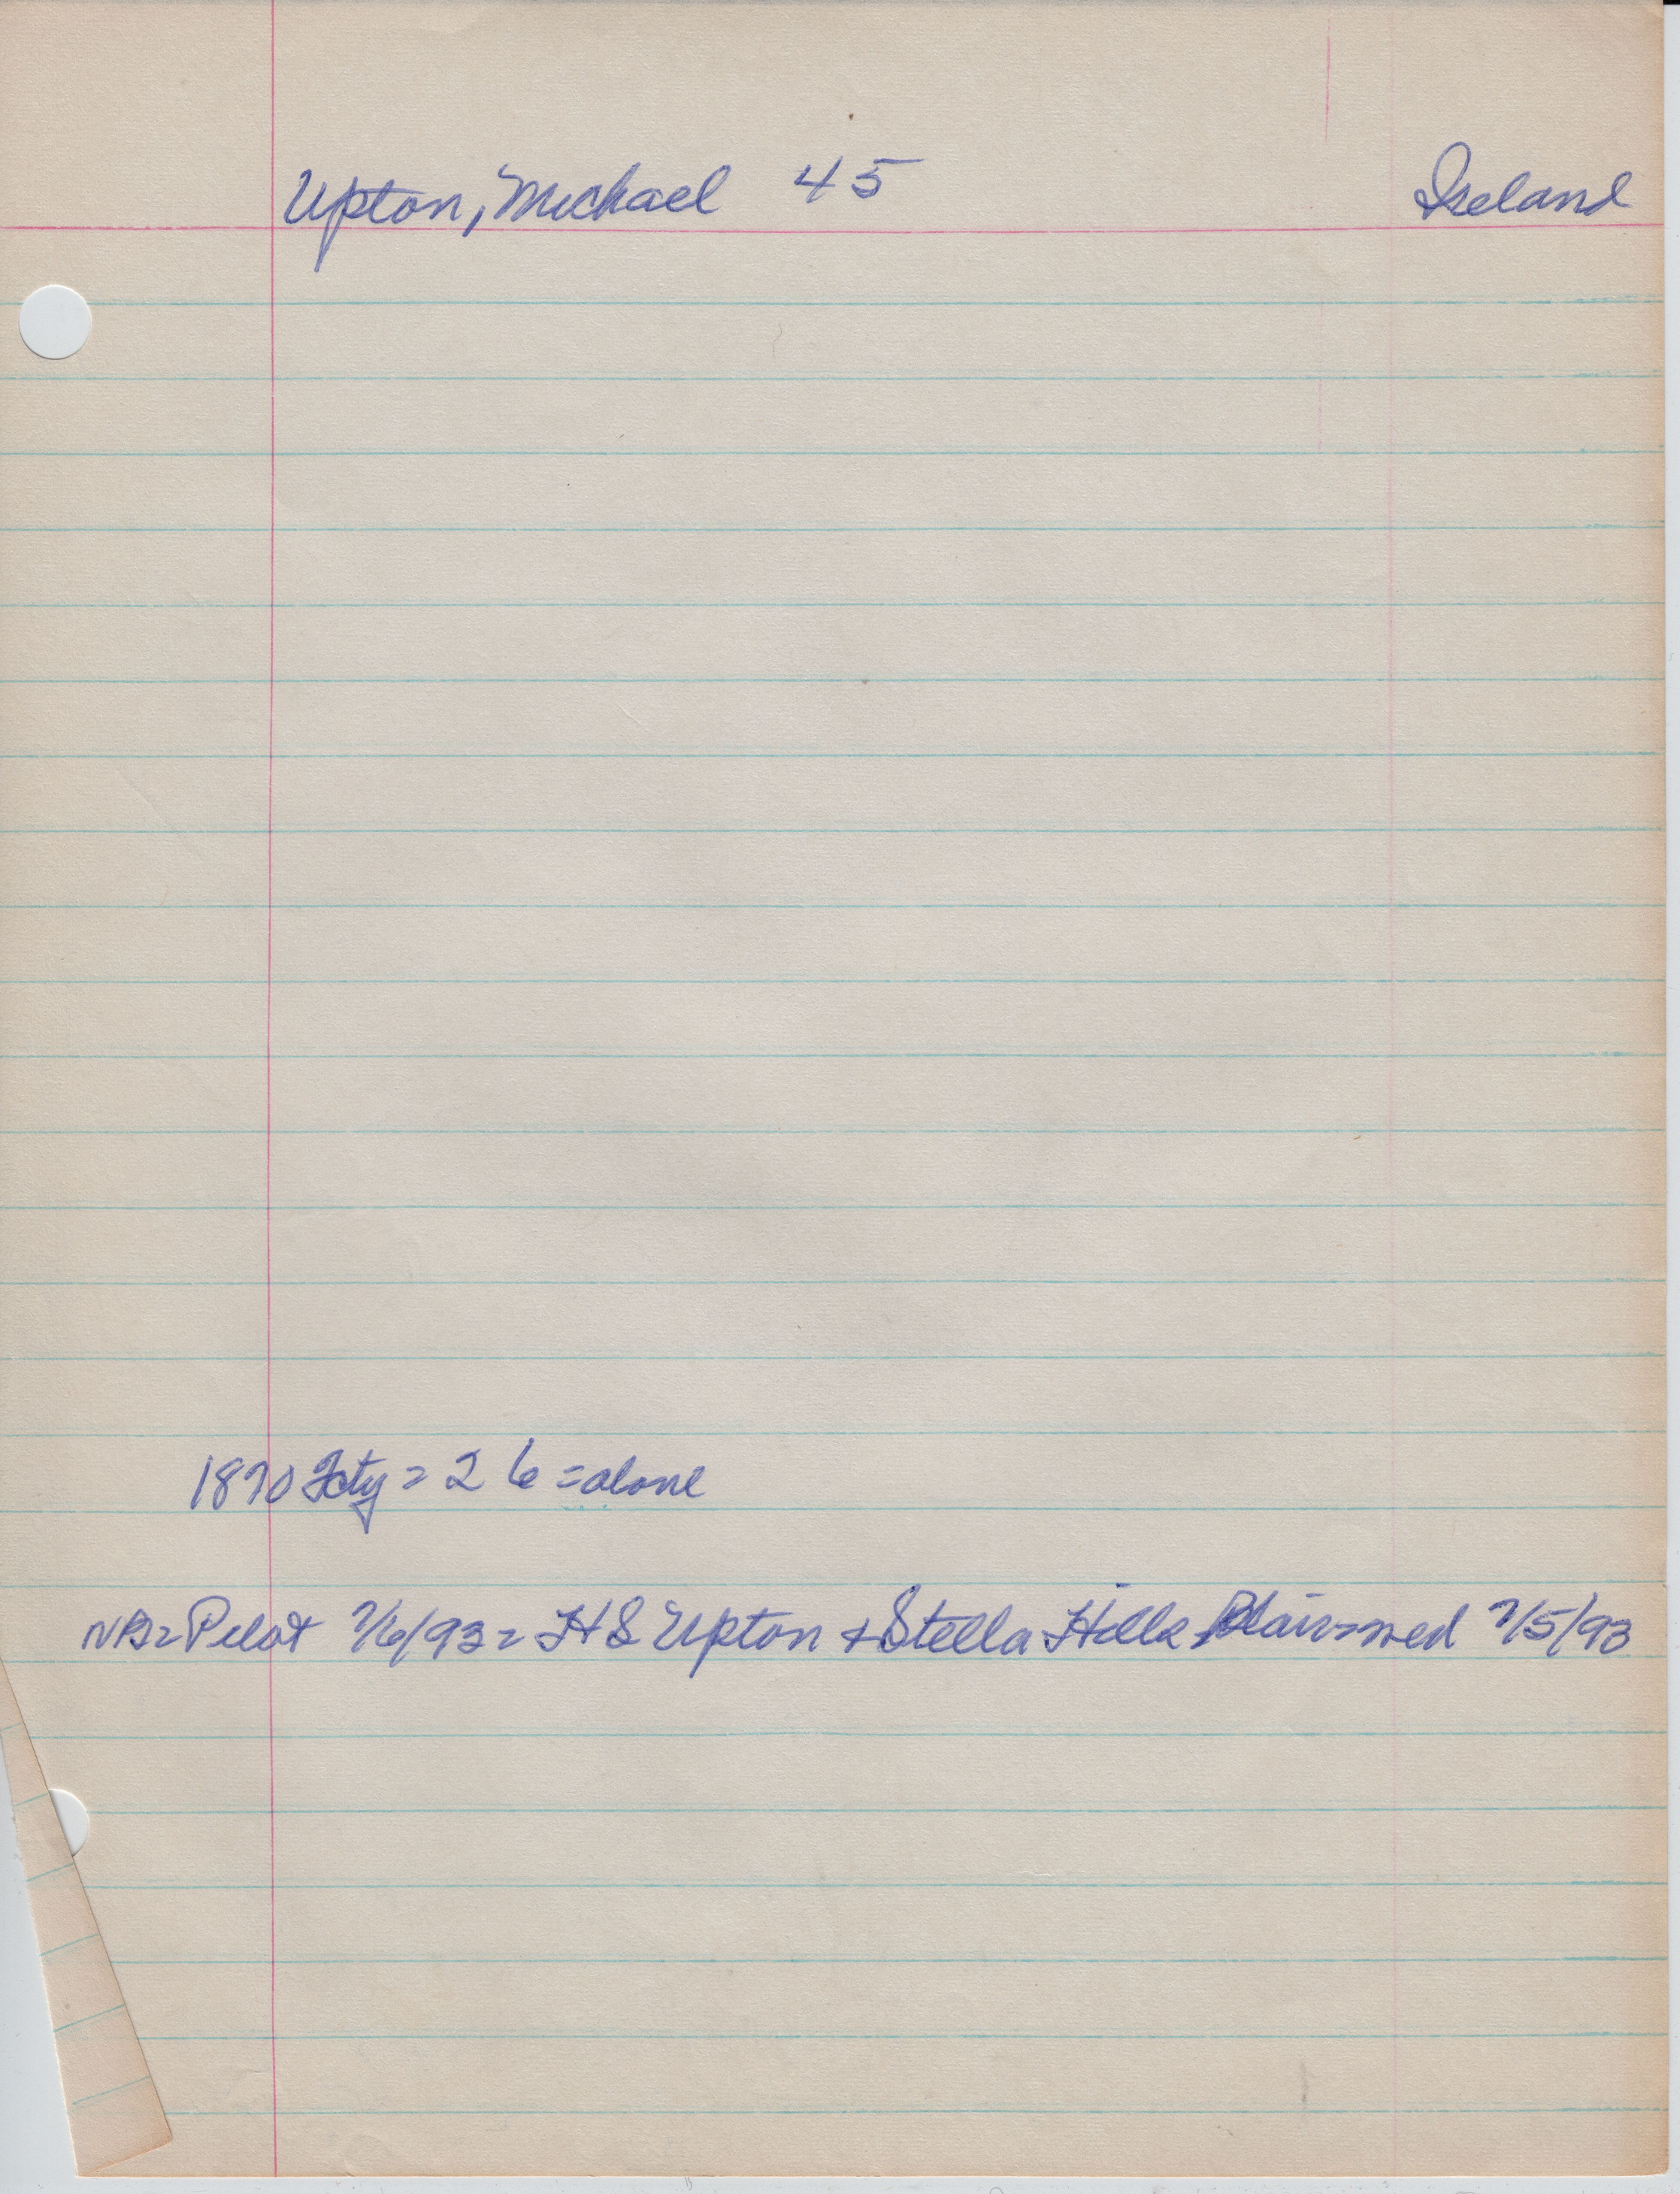 Upton, Michael 45 Ireland
1870 Fcty = 26 = alone
NB = Pilot 7/6/93 = HS Upton + Stella Hills Blair = wed 7/5/93